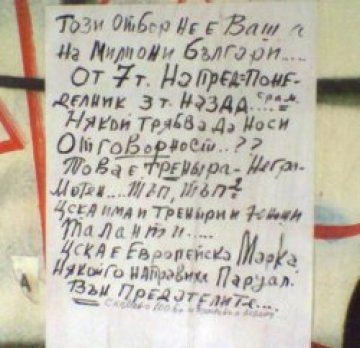 Този отбор не е Ваш а
на милиони българи....
От 7т. напред=поне-
делник 3т. назад....срам.
Някой трябва да носи
отговорност..??
Това е треныра - негра-
мотен.... тъп, тъп?
ЦСКА има и треньри и
таланти....
ЦСКА е Европейска марка
Някой го направиха парцал.
Вън предателите....